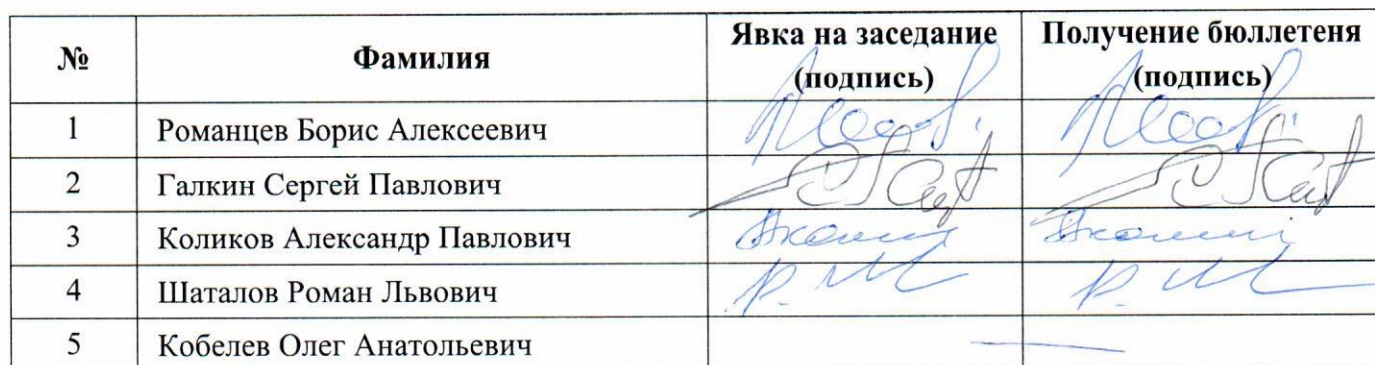 № Фамилия Явка на заседание (подпись) Получение бюллетеня (подпись)
1 Романцев Борис Алексеевич
2 Галкин Сергей Павлович
3 Коликов Александр Павлович
4 Шаталов Роман Львович
5 Кобелев Олег Анатольевич